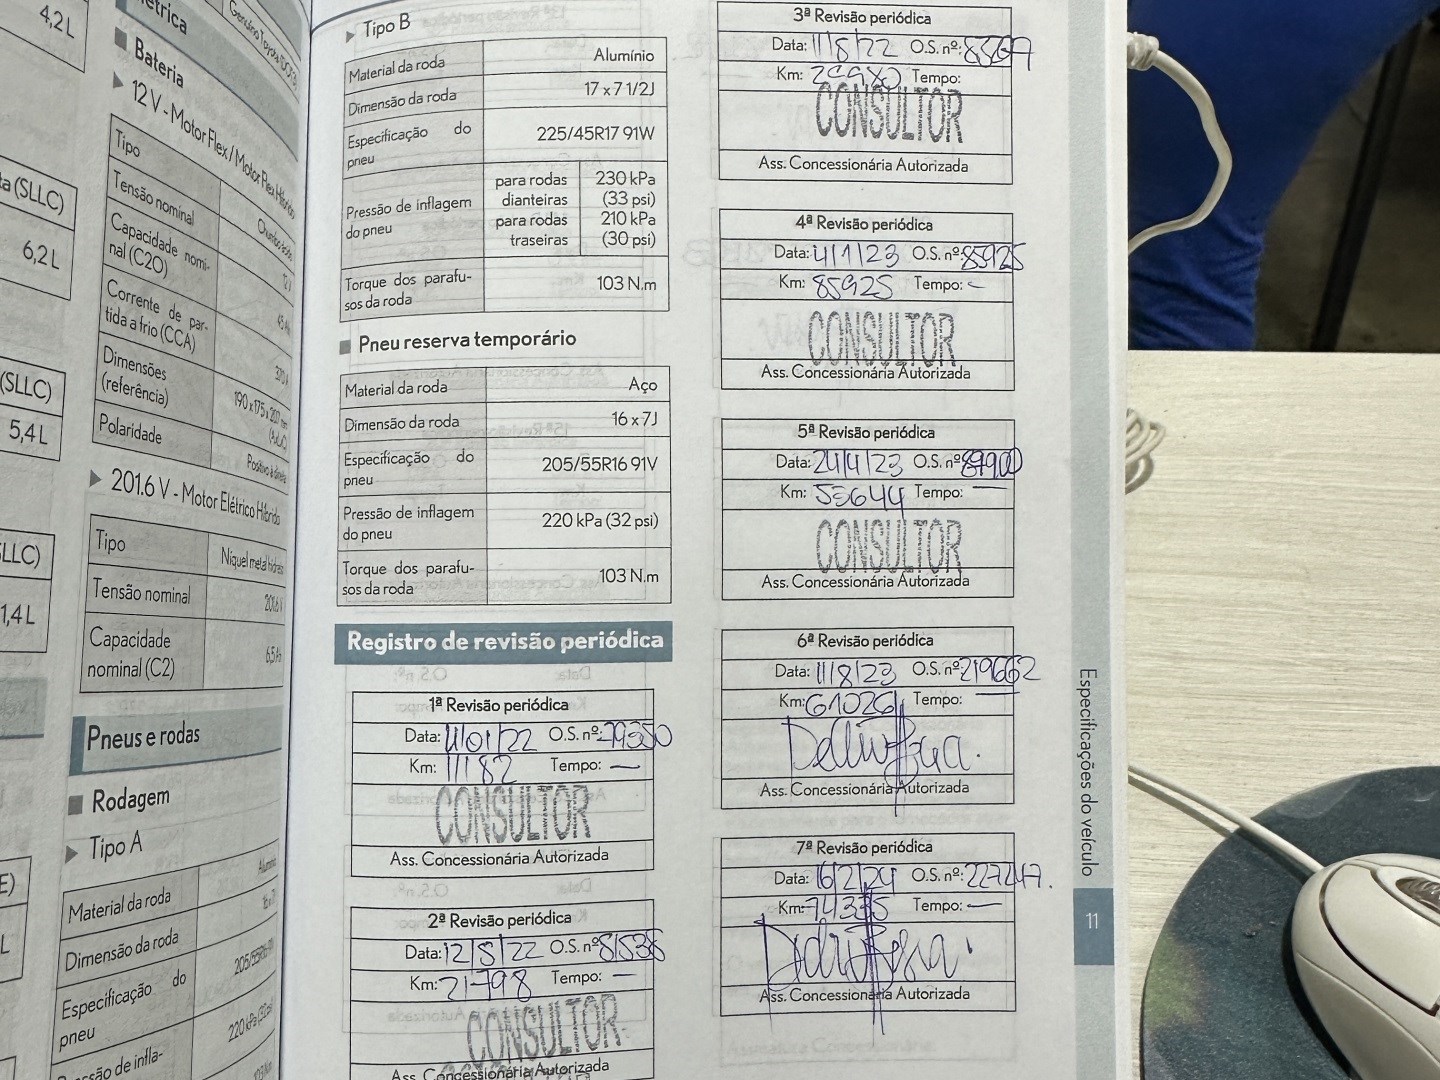 4,2 L
ta (SLLC)
6,2 L
(SLLC)
5,4 L
LLC)
1,4 L
E)
L
étrica
Genuíno Toyota
■ Bateria
▶ 12 V - Motor Flex / Motor Flex Híbrido
Tipo Chumbo ácido
Tensão nominal 12 V
Capacidade nomi-
nal (C20) 45 Ah
Corrente de par-
tida a frio (CCA)
Dimensões
(referência)
Polaridade Positivo à direita
▶ 201.6 V - Motor Elétrico Híbrido
Tipo Níquel metal hidreto
Tensão nominal 201.6 V
Capacidade
nominal (C2) 6,5 Ah
Pneus e rodas
■ Rodagem
▶ Tipo A
Material da roda Alumínio
Dimensão da roda
Especificação do
pneu
são de infla-
▶ Tipo B
Material da roda Alumínio
Dimensão da roda 17 x 7 1/2J
Especificação do
pneu 225/45R17 91W
Pressão de inflagem
do pneu
para rodas
dianteiras
230 kPa
(33 psi)
para rodas
traseiras
210 kPa
(30 psi)
Torque dos parafu-
sos da roda 103 N.m
■ Pneu reserva temporário
Material da roda Aço
Dimensão da roda 16 x 7J
Especificação do
pneu 205/55R16 91V
Pressão de inflagem
do pneu 220 kPa (32 psi)
Torque dos parafu-
sos da roda 103 N.m
Registro de revisão periódica
1ª Revisão periódica
Data: 11/01/22 O.S. nº: 79350
Km: 11182 Tempo: —
CONSULTOR
Ass. Concessionária Autorizada
2ª Revisão periódica
Data: 12/5/22 O.S. nº: 81538
Km: 21798 Tempo: —
CONSULTOR
Ass. Concessionária Autorizada
3ª Revisão periódica
Data: 11/8/22 O.S. nº:
Km: Tempo:
CONSULTOR
Ass. Concessionária Autorizada
4ª Revisão periódica
Data: 4/1/23 O.S. nº: 85925
Km: 85925 Tempo: —
CONSULTOR
Ass. Concessionária Autorizada
5ª Revisão periódica
Data: 24/4/23 O.S. nº:
Km: 53644 Tempo: —
CONSULTOR
Ass. Concessionária Autorizada
6ª Revisão periódica
Data: 11/8/23 O.S. nº: 219662
Km: 61026 Tempo: —
Ass. Concessionária Autorizada
7ª Revisão periódica
Data: 16/2/24 O.S. nº: 227247.
Km: 74335 Tempo: —
Ass. Concessionária Autorizada
Especificações do veículo
11